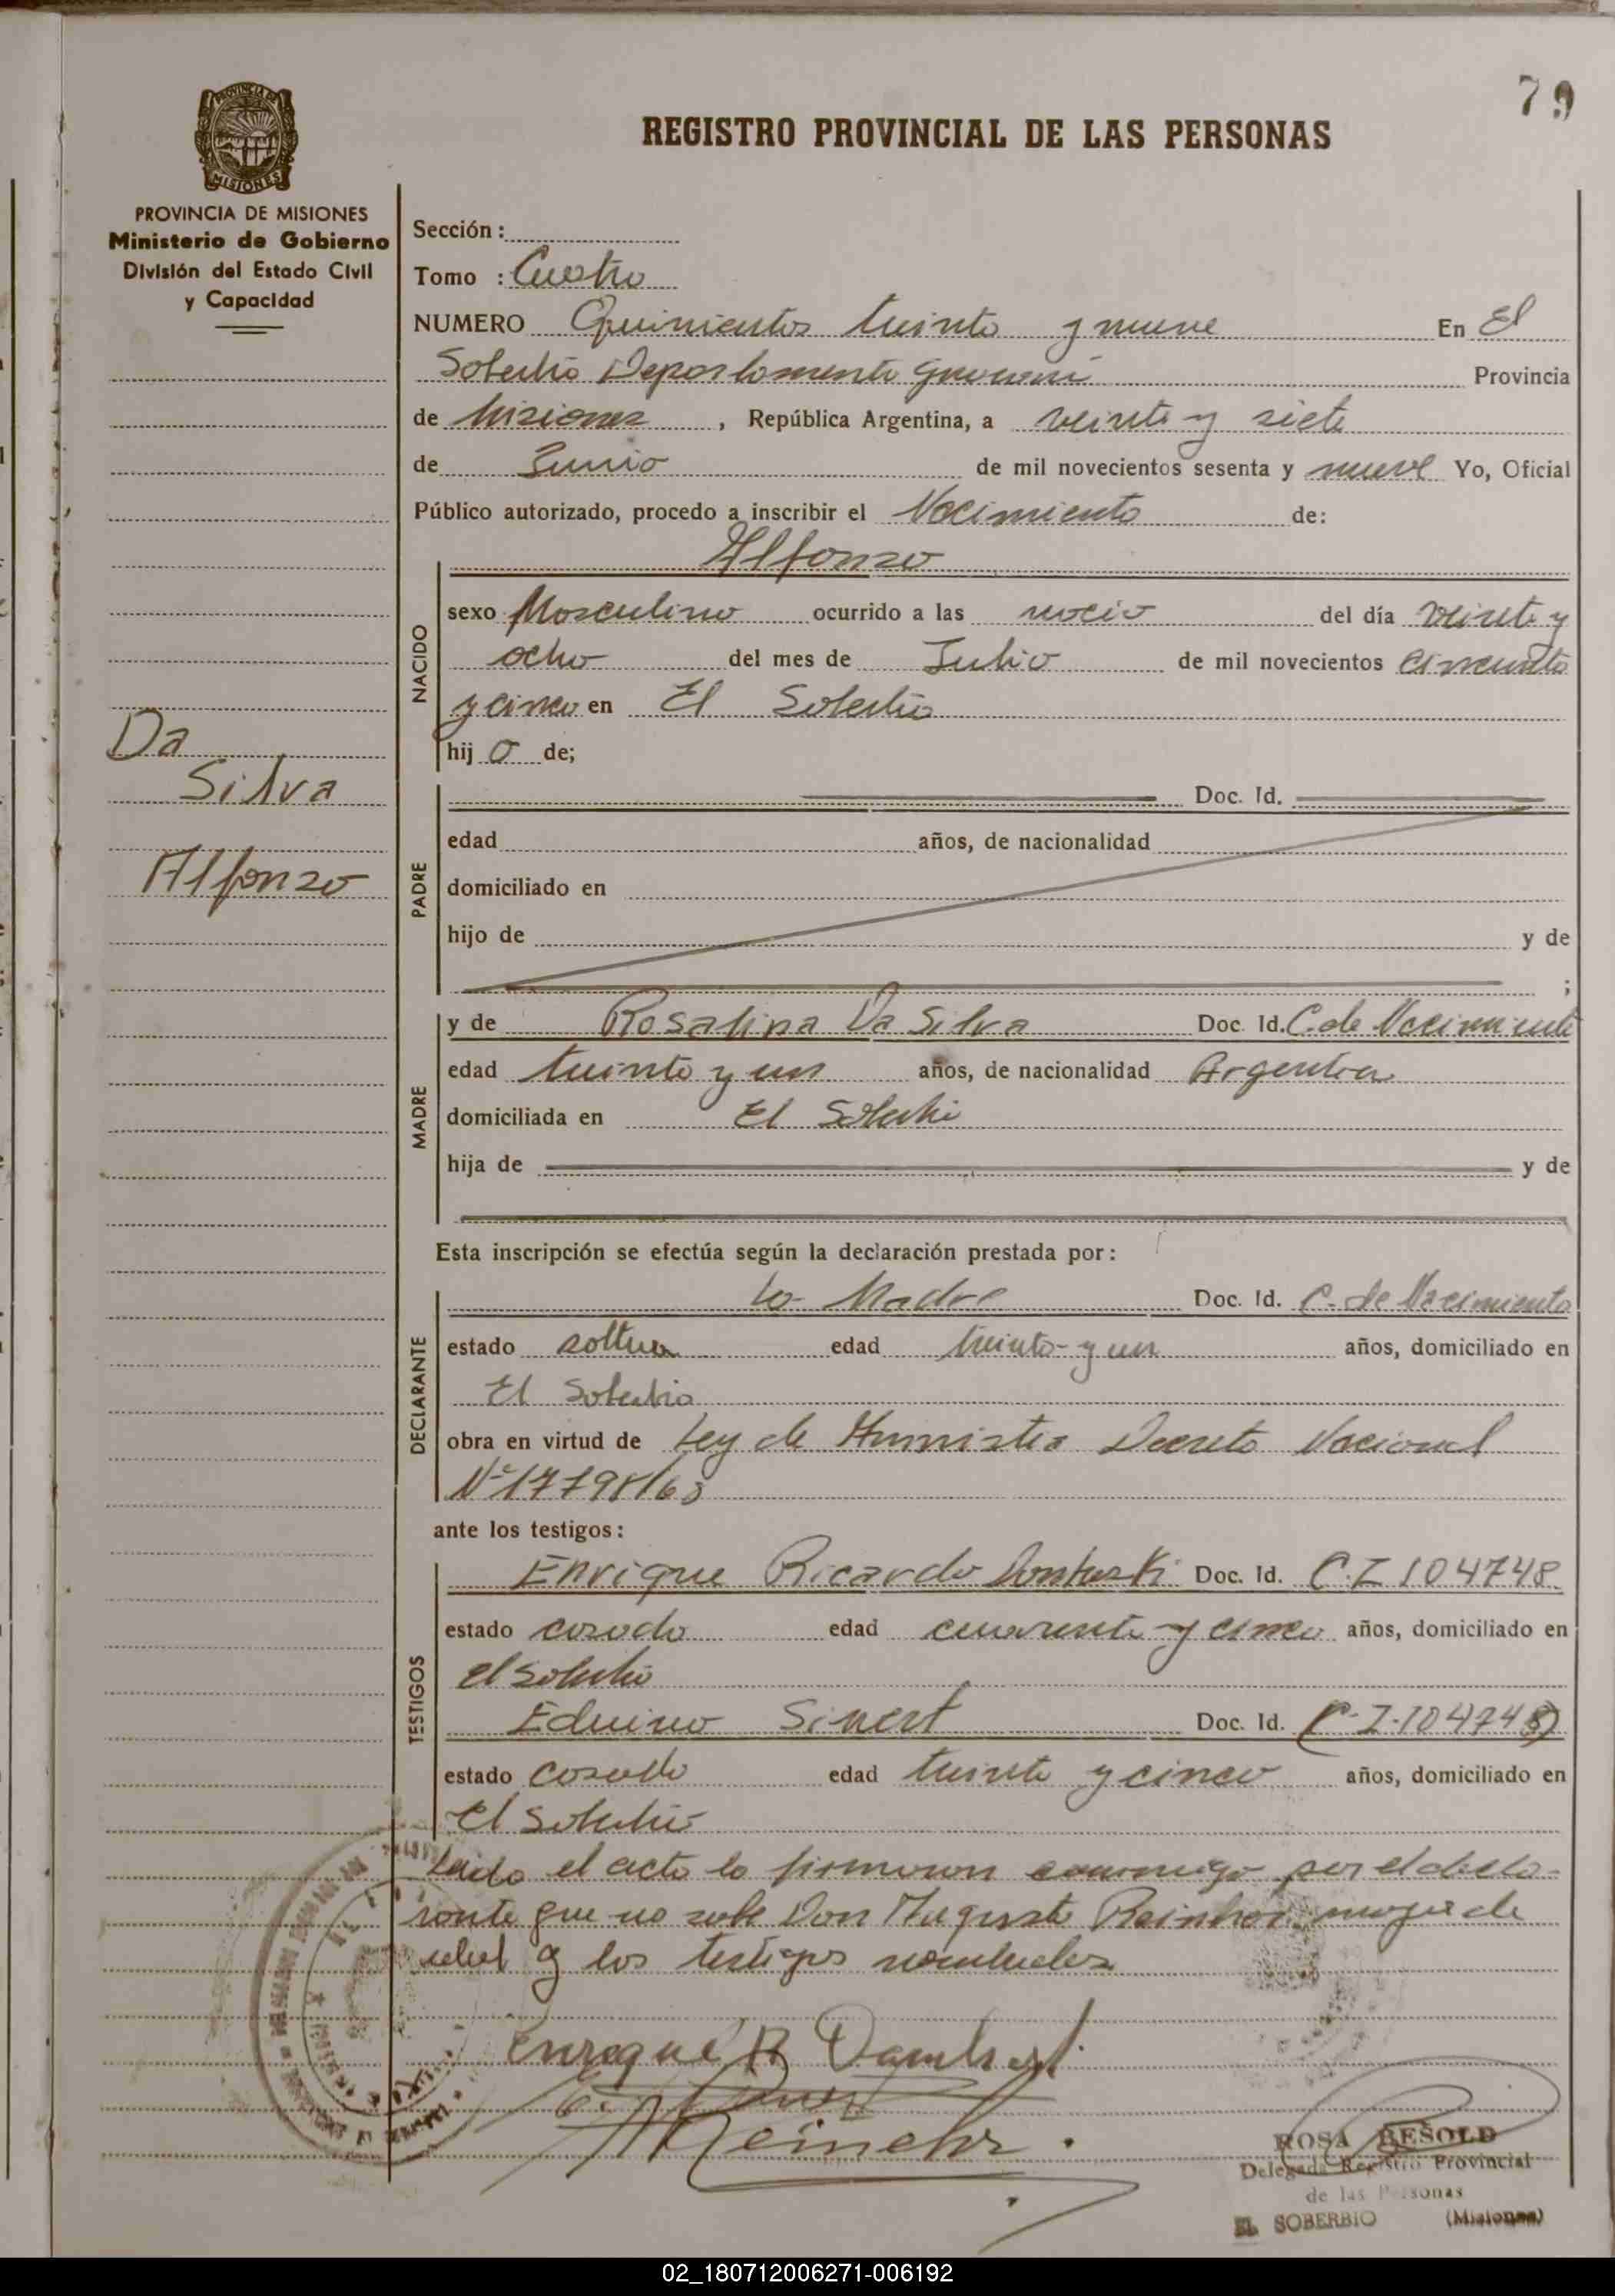 79
REGISTRO PROVINCIAL DE LAS PERSONAS
PROVINCIA DE
MISIONES
PROVINCIA DE MISIONES
Ministerio de Gobierno
División del Estado Civil
y Capacidad
Sección :
Tomo : Cuatro
NUMERO Quinientos treinta y nueve En El
Soberbio Departamento Guaraní Provincia
de Misiones , República Argentina, a veinte y siete
de Junio de mil novecientos sesenta y nueve Yo, Oficial
Público autorizado, procedo a inscribir el Nacimiento de:
Alfonzo
NACIDO
sexo Masculino ocurrido a las del día veinte y
ocho del mes de Julio de mil novecientos cincuenta
y cinco en El Soberbio
hij o de;
Da
Silva
Alfonzo
PADRE
Doc. Id.
edad años, de nacionalidad
domiciliado en
hijo de y de
;
MADRE
y de Rosalina Da Silva Doc. Id. C. de Nacimiento
edad treinta y un años, de nacionalidad Argentina
domiciliada en El Soberbio
hija de y de
Esta inscripción se efectúa según la declaración prestada por :
DECLARANTE
La Madre Doc. Id. C. de Nacimiento
estado soltera edad treinta y un años, domiciliado en
El Soberbio
obra en virtud de Ley de Amnistia Decreto Nacional
Nº 17798/68
ante los testigos :
TESTIGOS
Enrique Ricardo Doc. Id. C.I 104748
estado casado edad cuarenta y cinco años, domiciliado en
El Soberbio
Eduino Sinert Doc. Id. C.I.104748)
estado casado edad treinta y cinco años, domiciliado en
El Soberbio
Leido el acta la firmaron conmigo por el decla-
rante que no sabe Don Augusto mayor de
edad y los testigos nombrados
Enrique R
ROSA BESOLD
Delegada Registro Provincial
de las Personas
EL SOBERBIO (Misiones)
02_180712006271-006192